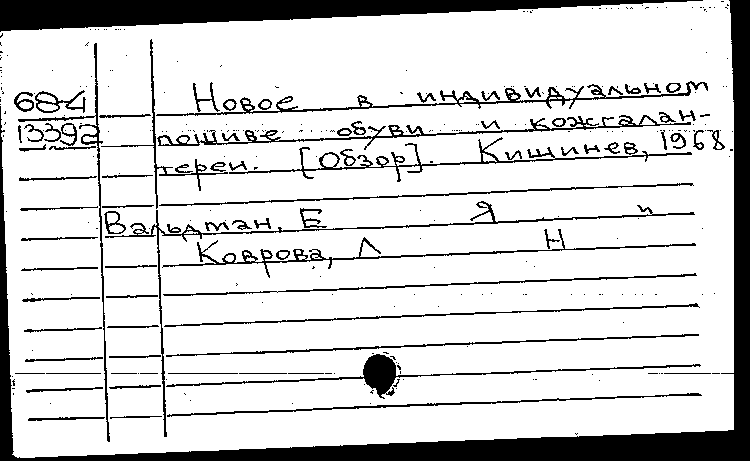 68-4 Новое в индивидуальном
13392 пошиве обуви и кожгалан-
тереи. [Обзор]. Кишинев, 1968.
Вальдман, Е Я и
Коврова, Л Н